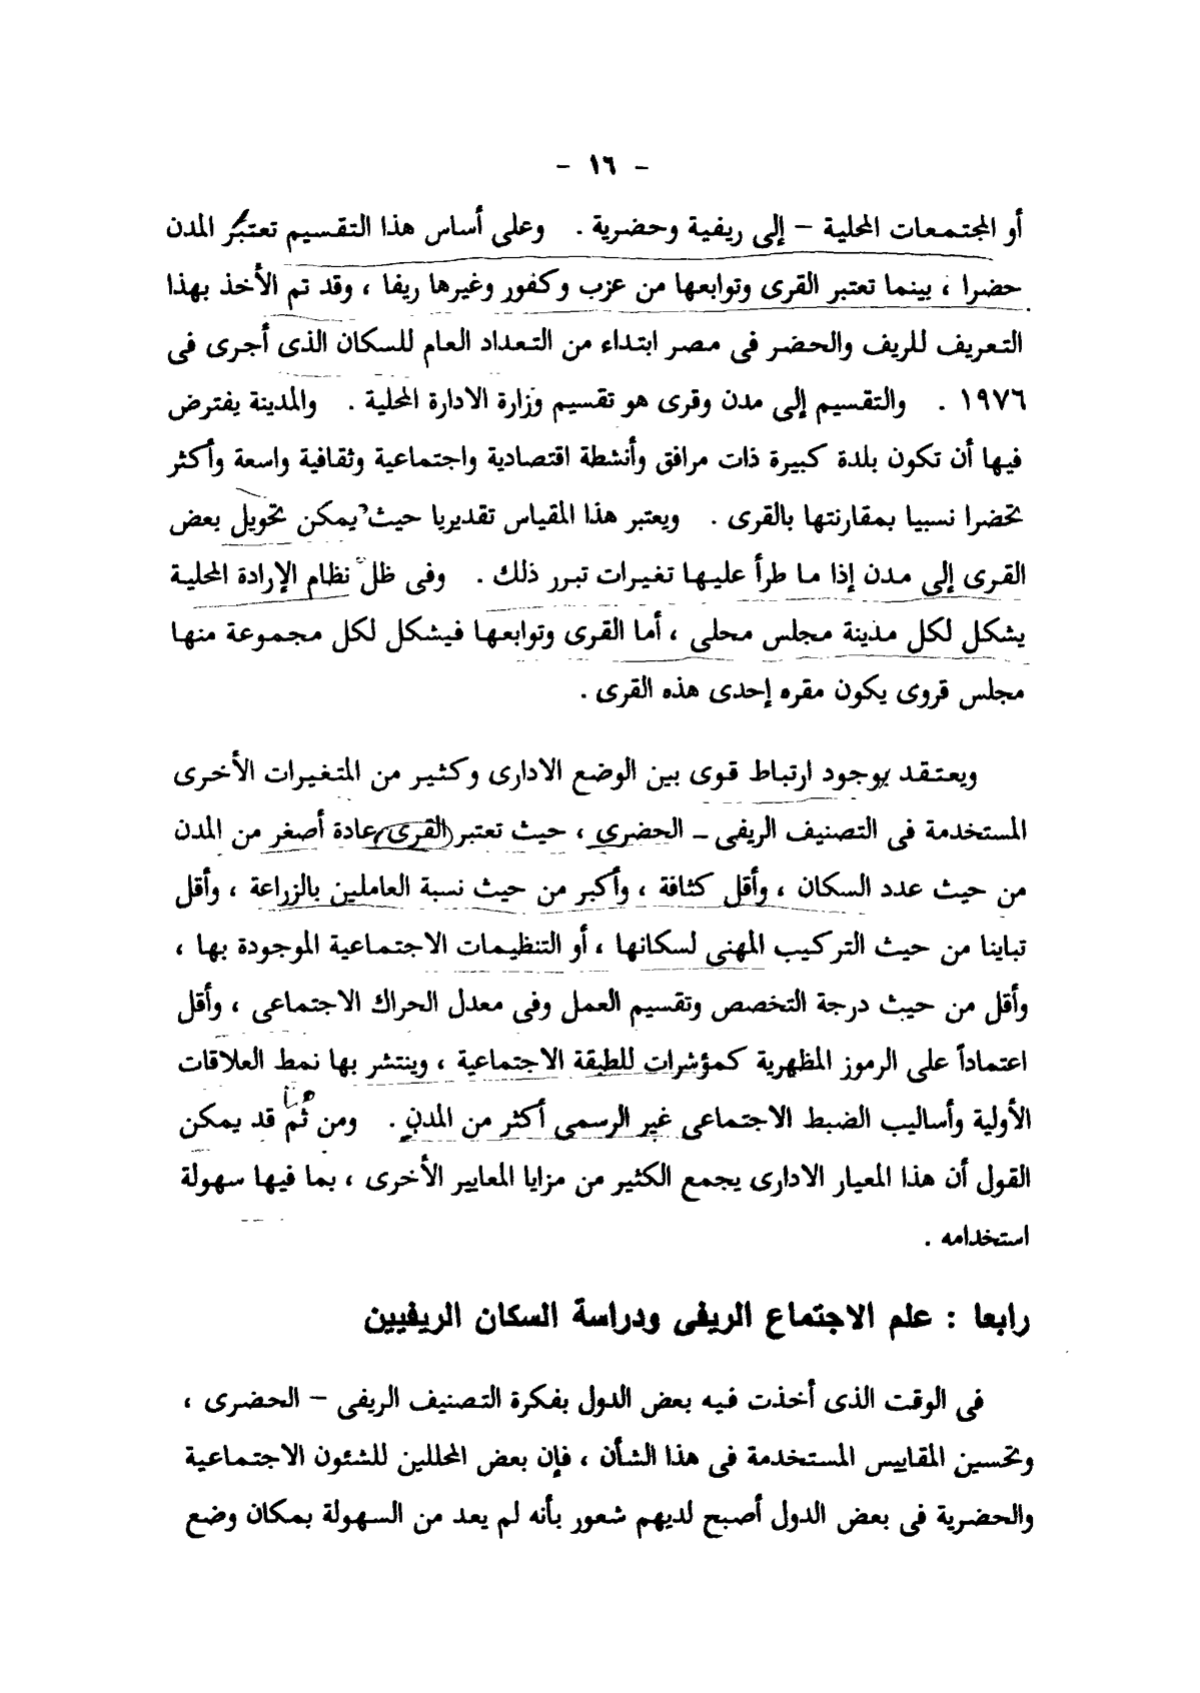 - ١٦ -
أو المجتمعات المحلية – إلى ريفية وحضرية . وعلى أساس هذا التقسيم تعتبر المدن
حضرا ، بينما تعتبر القرى وتوابعها من عزب وكفور وغيرها ريفا ، وقد تم الأخذ بهذا
التعريف للريف والحضر فى مصر ابتداء من التعداد العام للسكان الذى أجرى فى
١٩٧٦ . والتقسيم إلى مدن وقرى هو تقسيم وزارة الادارة المحلية . والمدينة يفترض
فيها أن تكون بلدة كبيرة ذات مرافق وأنشطة اقتصادية واجتماعية وثقافية واسعة وأكثر
تحضرا نسبيا بمقارنتها بالقرى . ويعتبر هذا المقياس تقديريا حيث يمكن تحويل بعض
القرى إلى مدن إذا ما طرأ عليها تغيرات تبرر ذلك . وفى ظل نظام الإرادة المحلية
يشكل لكل مدينة مجلس محلى ، أما القرى وتوابعها فيشكل لكل مجموعة منها
مجلس قروى يكون مقره إحدى هذه القرى .
ويعتقد بوجود ارتباط قوى بين الوضع الادارى وكثير من المتغيرات الأخرى
المستخدمة فى التصنيف الريفى – الحضرى ، حيث تعتبر القرى عادة أصغر من المدن
من حيث عدد السكان ، وأقل كثافة ، وأكبر من حيث نسبة العاملين بالزراعة ، وأقل
تباينا من حيث التركيب المهنى لسكانها ، أو التنظيمات الاجتماعية الموجودة بها ،
وأقل من حيث درجة التخصص وتقسيم العمل وفى معدل الحراك الاجتماعى ، وأقل
اعتماداً على الرموز المظهرية كمؤشرات للطبقة الاجتماعية ، وينتشر بها نمط العلاقات
الأولية وأساليب الضبط الاجتماعى غير الرسمى أكثر من المدن . ومن ثم قد يمكن
القول أن هذا المعيار الادارى يجمع الكثير من مزايا المعايير الأخرى ، بما فيها سهولة
استخدامه .
رابعا : علم الاجتماع الريفى ودراسة السكان الريفيين
فى الوقت الذى أخذت فيه بعض الدول بفكرة التصنيف الريفى – الحضرى ،
وتحسين المقاييس المستخدمة فى هذا الشأن ، فإن بعض المحللين للشئون الاجتماعية
والحضرية فى بعض الدول أصبح لديهم شعور بأنه لم يعد من السهولة بمكان وضع